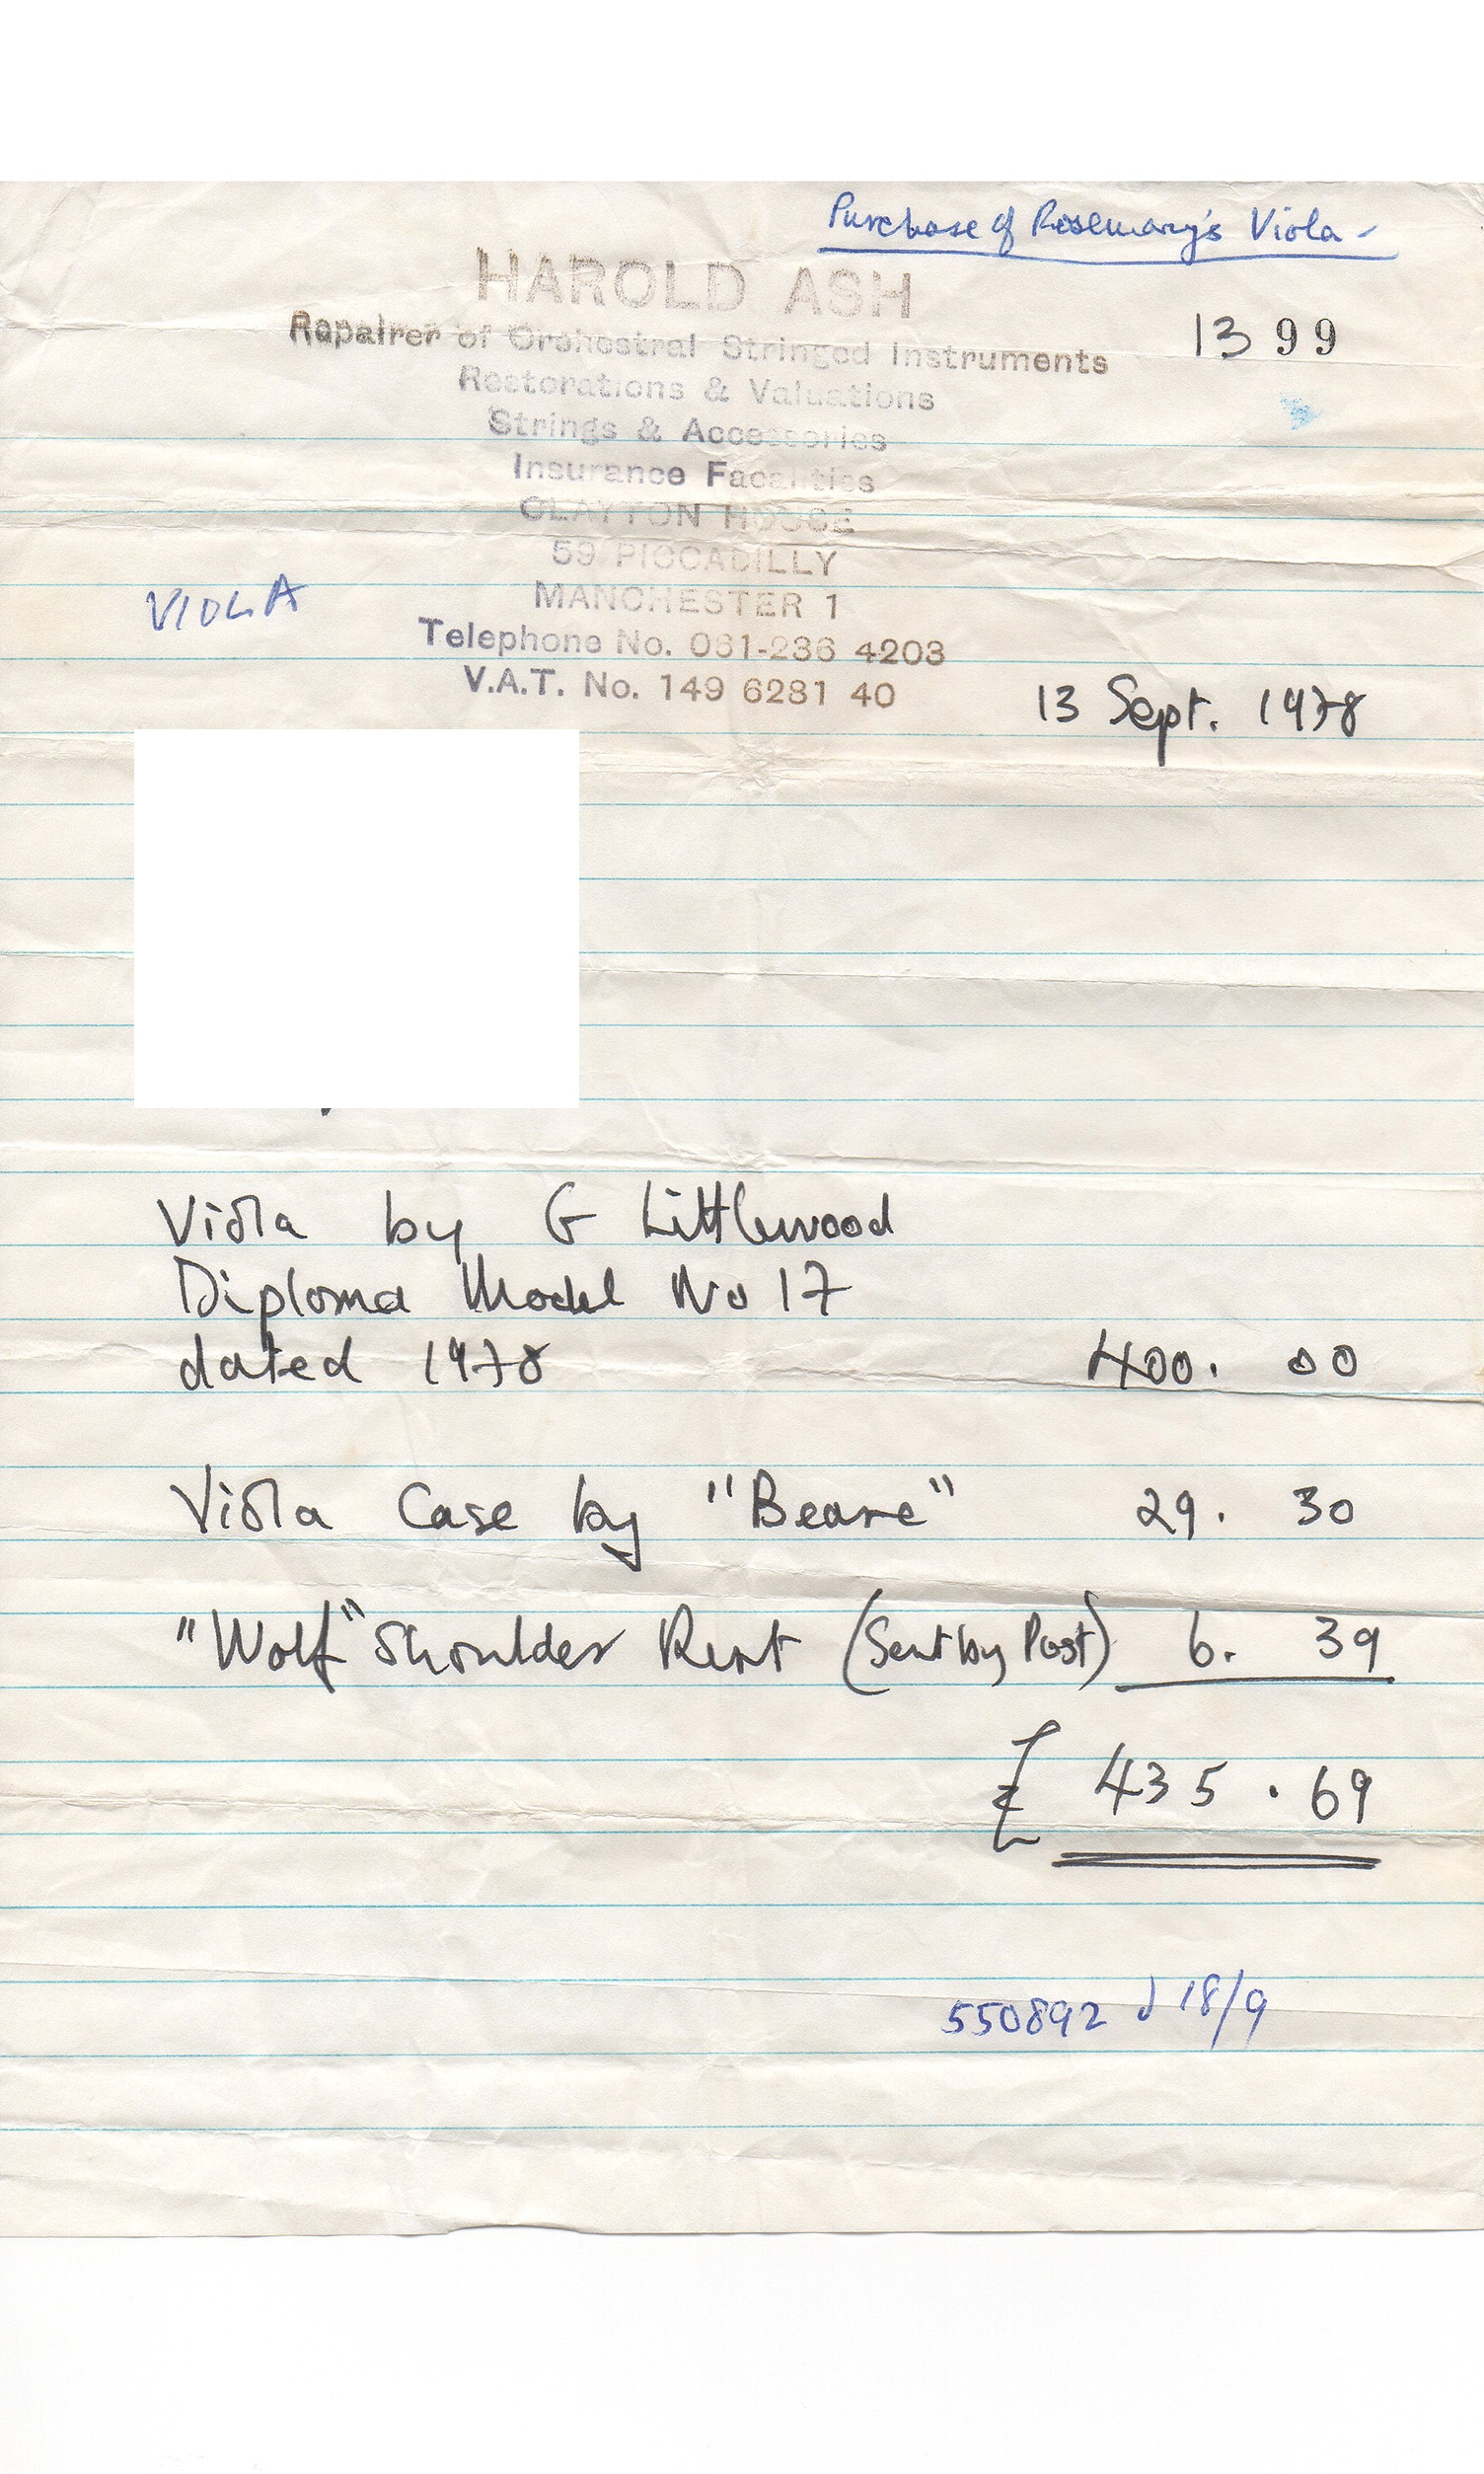 Purchase of Rosemary's Viola -
HAROLD ASH
1399
Repairer of Orchestral Stringed Instruments
Restorations & Valuations
Strings & Accessories
Insurance Facalities
CLAYTON HOUSE
59 PICCADILLY
VIOLA
MANCHESTER 1
Telephone No. 061-236 4203
V.A.T. No. 149 6281 40
13 Sept. 1978
Viola by G Littlewood
Diploma Model No 17
dated 1978 400. 00
Viola Case by "Beare" 29. 30
"Wolf" Shoulder Rest (Sent by Post) 6. 39
£ 435.69
550892 d 18/9